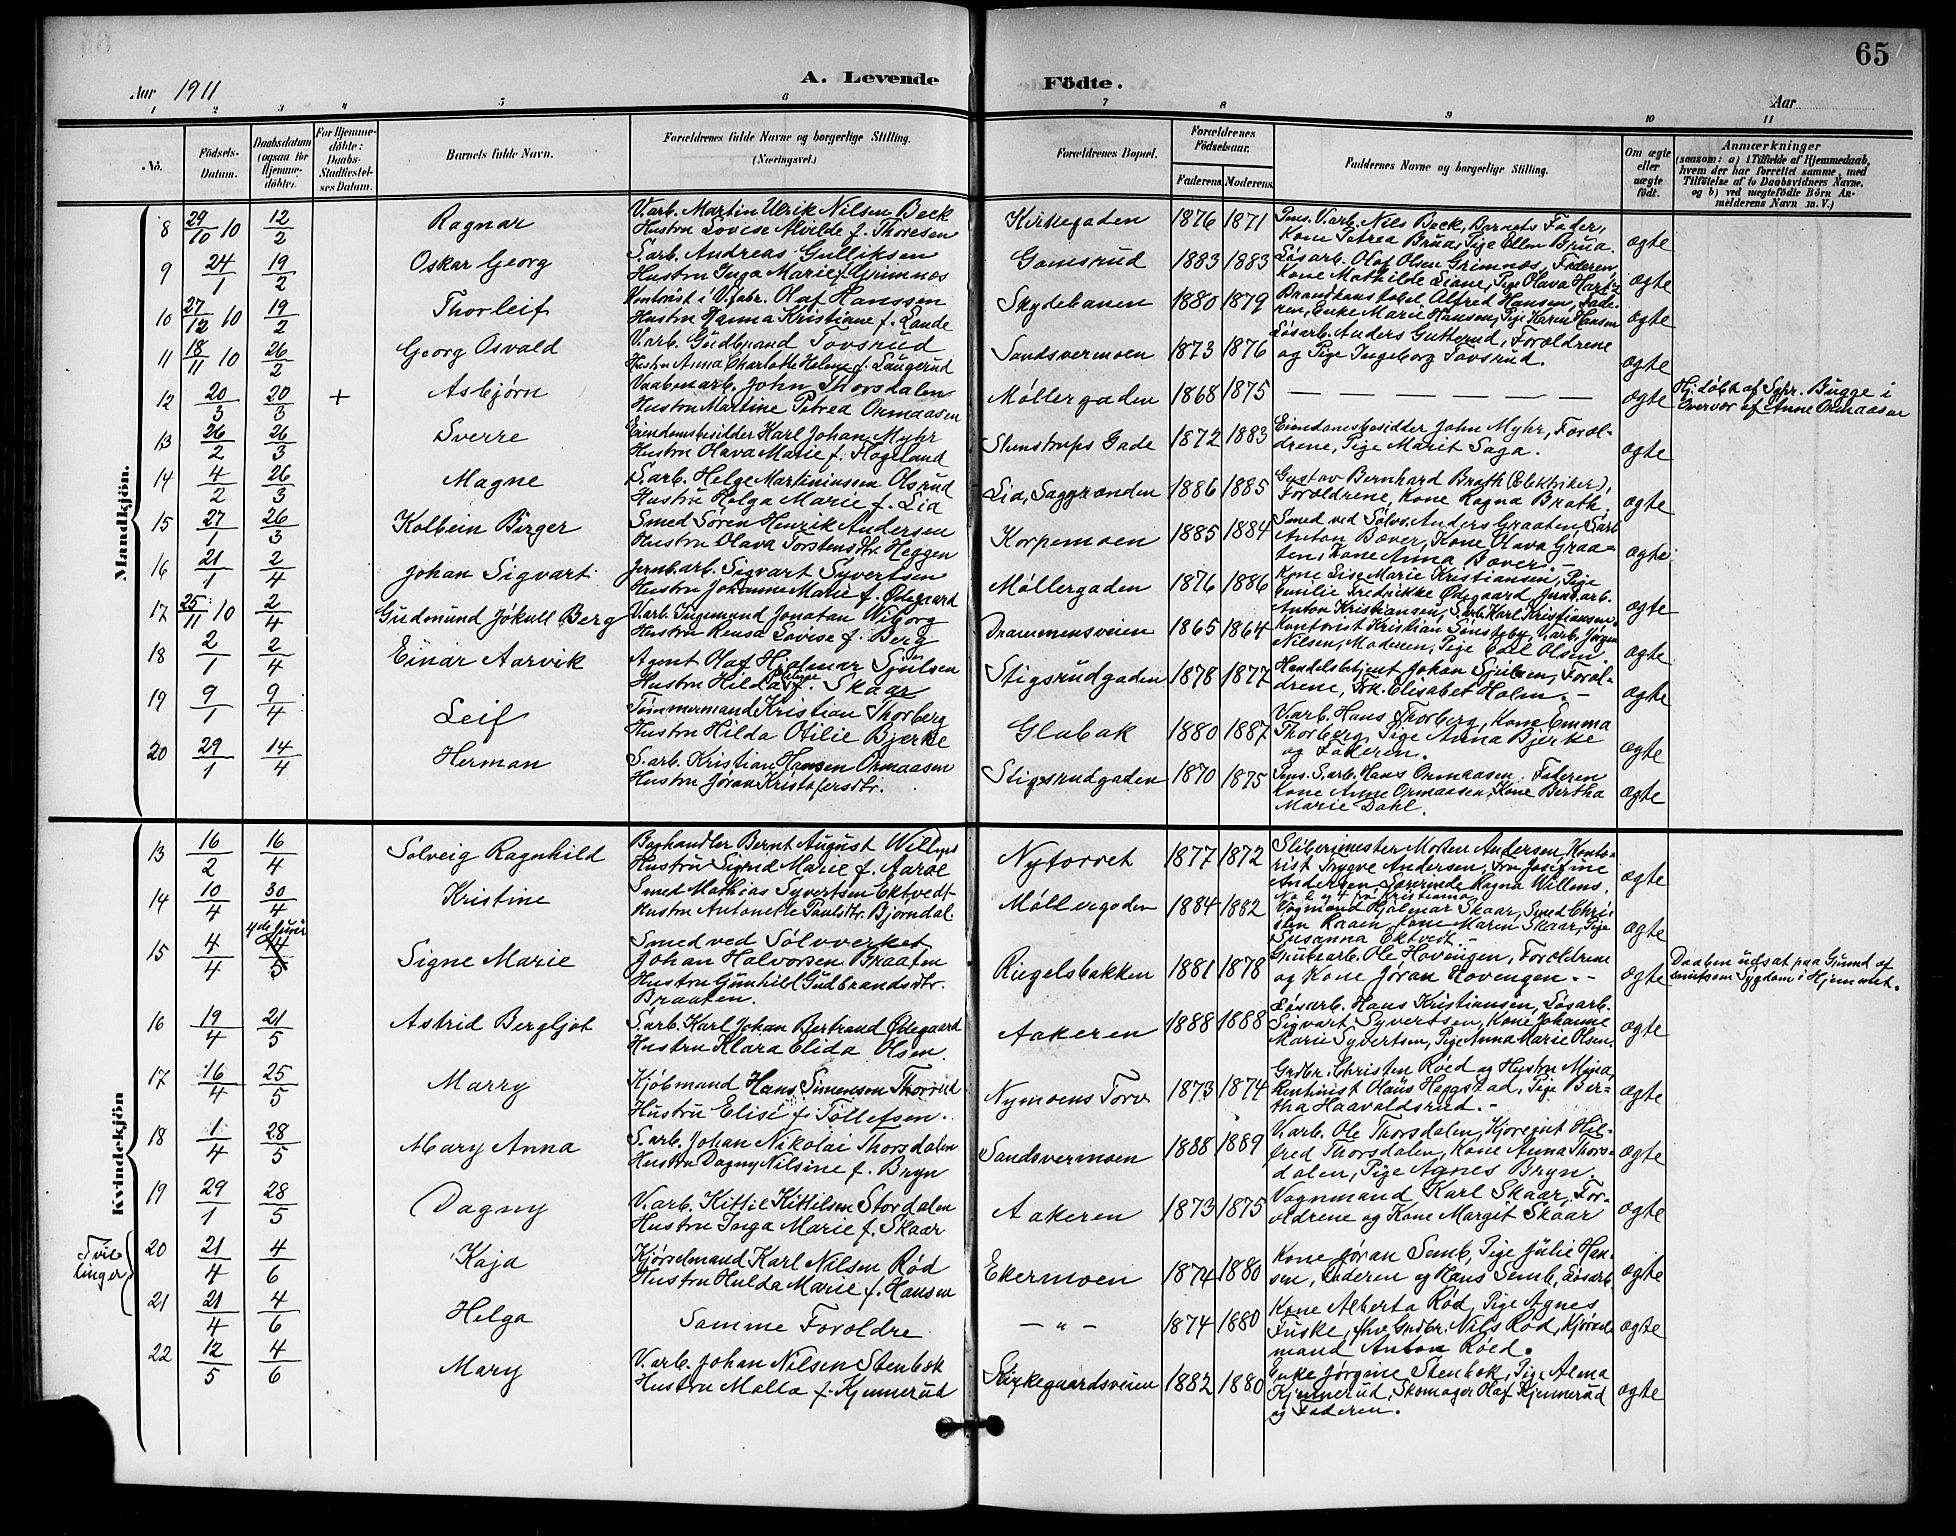 65
Aar 1911
A. Levende Födte.
Aar
1 2 3 4 5 6 7 8 9 10 11
No.
Födsels-Datum.
Daabsdatum (ogsaa for Hjemme-döbte).
For Hjemme-döbte: Daabs-Stadfæstel-ses Datum.
Barnets fulde Navn.
Forældrenes fulde Navne og borgerlige Stilling. (Næringsvei.)
Forældrenes Bopæl.
Forældrenes Födselsaar.
Faderens. Moderens.
Faddernes Navne og borgerlige Stilling.
Om ægte eller uægte født.
Anmærkninger
(saasom: a) i Tilfælde af Hjemmedaab, hvem der har forrettet samme, med Tilföielse af to Daabsvidners Navne, og b) ved uægtefödte Börn An-melderens Navn m. V.)
Mandkjön.
8 29/10 10 12/2 Ragnar
V.arb. Martin Ulrik Nilsen Beck
Hustru Lovise Mvilde f. Thoresen
Kirkegaden 1876 1871
Pens. V.arb. Nils Beck, Barnets Fader,
Kone Petrea Brua, Pige Ellen Brua.
ægte
9 24/1 19/2 Oskar Georg
S.arb. Andreas Gulliksen
Hustru Inga Marie f. Grimnæs
Gomsrud 1883 1883
Løsarb. Olaf Olsen Grimnæs, Faderen,
Kone Mathilde Liane, Pige Olava
ægte
10 27/12 10 19/2 Thorleif
Kontorist i V.fabr. Olaf Hanssen
Hustru Hanna Kristiane f. Lande
Skydebanen 1880 1879
Brandkonstabel Alfred Hansen, Fade-
ren, Enke Marie Hansen, Pige Karen Hansen
ægte
11 18/11 10 26/2 Georg Osvald
V.arb. Gudbrand Tovsrud
Hustru Anna Charlotte Helene f. Laugerud
Sandsvermoen 1873 1876
Løsarb. Anders Gutterud, Forældrene
og Pige Ingeborg Tovsrud.
ægte
12 20/3 20/3 + Asbjørn
Vaabenarb. John Thorsdalen
Hustru Martine Petrea Ormaasen
Møllergaden 1868 1875 — — — — — — —
ægte
Hj.døbt af Sghr. Bugge i
Overvær af Anne Ormaasen
13 26/2 26/3 Sverre
Eiendomsbesidder Karl Johan Myhr
Hustru Olava Marie f. Fogelund
Stenstrups Gade 1872 1883
Eiendomsbesidter John Myhr, Foræl-
drene, Pige Marit Saga.
ægte
14 4/2 26/3 Magne
S.arb. Helge Martiniussen Olsrud
Hustru Helga Marie f. Lia
Lia, Saggrænden 1886 1885
Gustav Bernhard Brath (Elektriker),
Forældrene, Kone Ragna Brath.
ægte
15 27/1 26/3 Kolbein Birger
Smed Søren Henrik Andersen
Hustru Olava Torstensdtr. Heggen
Korpemoen 1885 1884
Smed ved Sølvv. Anders Graaten, S.arb
Anton Bæver, Kone Olava Graa-
ten, Kone Anna Bæver. —
ægte
16 21/1 2/4 Johan Sigvart
Jernb.arb. Sigvart Syvertsen
Hustru Johanne Marie f. Ødegaard
Møllergaden 1876 1886
Kone Lise Marie Kristiansen, Pige
Emilie Fredrikke Ødegaard, Jernb.arb.
Anton Kristiansen, S.arb. Karl Kristiansen.
ægte
17 25/11 10 2/4 Gudmund Jökull Berg
V.arb. Ingemund Jonatan Wiborg
Hustru Rensa Lovise f. Berg
Drammensveien 1865 1864
Kontorist Kristian Sensteby, V.arb. Jørgen
Nilsen, Moderen, Pige Olsen.
ægte
18 2/1 2/4 Einar Aarvik
Agent Olaf Hjalmar Sjulsen
Hustru Hilda f. Skaar
Stigsrudgaden 1878 1877
Handelsbetjent Johan Sjulsen, Foræl-
drene, Frk. Elisabet Holm. —
ægte
19 9/1 9/4 Leif
Tømmermand Kristian Thorberg
Hustru Hilda Otilie Bjerke
Glabak 1880 1887
V.arb. Hans Thorberg, Kone Emma
Thorberg, Pige Anna Bjerke
og Faderen.
ægte
20 29/1 14/4 Herman
S.arb. Kristian Hansen Ormaasen
Hustru Jøran Kristofersdtr.
Stigsrudgaden 1870 1875
Pens. S.arb. Hans Ormaasen, Faderen
Kone Anne Ormaasen, Kone Bertha
Marie Dahl.
ægte
Kvindekjön
13 16/2 16/4 Solveig Ragnhild
Boghandler Bernt August Willms
Hustru Sigrid Marie f. Aarøe
Nytorvet 1877 1872
Sliberimester Morten Andersen, Konto-
rist Trygve Andersen, Fru Josefine
Andersen, Lærerinde Ragna Willems.
No 2 og 4 fra Kristiania
ægte
14 10/4 30/4 Kristine
Smed Mathias Syvertsen Ektvedt
Hustru Antonette Paulsdtr. Bjørndal.
Møllergaden 1884 1882
Vognmand Hjalmar Skaar, Smed Chri-
sten Raaen, Kone Maren Skaar, Pige
Susanna Ektvedt. —
ægte
15 4/4 4de Juni 14/5 Signe Marie
Smed ved Sølvverket
Johan Halvorsen Braaten
Hustru Gunhild Gudbrandsdtr.
Braaten.
Riegelsbakken 1881 1878
Grubearb. Ole Hovengen, Forældrene
og Kone Jøran Hovengen. —
ægte
Daaben udsat paa Grund af
smitsom Sygdom i Hjemmet.
16 19/4 21/5 Astrid Bergljot
S.arb. Karl Johan Bertrand Ødegaard
Hustru Klara Elida Olsen.
Aakeren 1888 1888
Løsarb. Hans Kristiansen, Løsarb.
Sigvart Syvertsen, Kone Johanne
Marie Syvertsen, Pige Anna Marie Olsen.
ægte
17 16/4 25/5 Marry
Kjøbmand Hans Simensen Thorrud
Hustru Elise f. Tollefsen.
Nymoens Torv 1873 1874
Grdbr. Christen Røed og Hustru Mina,
Kontorist Olaus Heggstad, Pige Ber-
tha Haavaldsrud. —
ægte
18 1/4 28/5 Mary Anna
S.arb. Johan Nikolai Thorsdalen
Hustru Dagny Nilsine f. Bryn
Sandsvermoen 1888 1889
V.arb. Ole Thorsdalen, Kjøregut Hil-
fred Thorsdalen, Kone Anna Thors-
dalen, Pige Agnes Bryn.
ægte
19 29/1 28/5 Dagny
V.arb. Kittil Kittilsen Stordalen
Hustru Inga Marie f. Skaar
Aakeren 1873 1875
Vognmand Karl Skaar, For-
ældrene og Kone Margit Skaar
ægte
Tvil-
linger
20 21/4 4/6 Kaja
Kjørselmand Karl Nilsen Rød
Hustru Hulda Marie f. Hansen
Ekermoen 1874 1880
Kone Jøran Semb, Pige Julie Han-
sen, Faderen og Hans Semb, Løsarb.
ægte
21 21/4 4/6 Helga
Samme Forældre
— " — 1874 1880
Kone Alberta Rød, Pige Agnes
Fuske, fhv Grdbr. Nils Rød, Kjørsel-
mand Anton Røed.
ægte
22 12/5 4/6 Mary
V.arb. Johan Nilsen Stenbæk
Hustru Malla f. Kjennerud
Kirkegaardsveien 1882 1880
Enke Jørgine Stenbæk, Pige Alma
Kjennerud, Skomager Olaf Kjennerud
og Faderen.
ægte